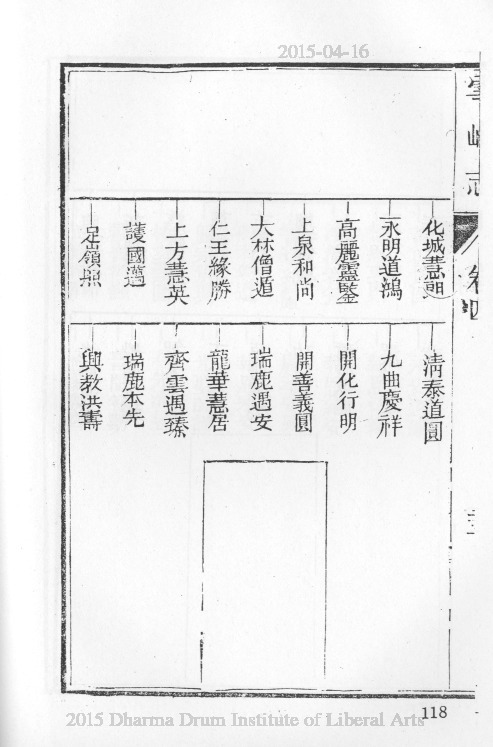 2015-04-16
雲峰志
卷四
化城慧朗
永明道鴻
高麗靈鑒
上泉和尚
大林僧遁
仁王緣勝
上方慧英
護國邁
足嶺照
清泰道圓
九曲慶祥
開化行明
開善義圓
瑞鹿遇安
龍華慧居
齊雲遇臻
瑞鹿本先
興教洪壽
三
118
2015 Dharma Drum Institute of Liberal Arts